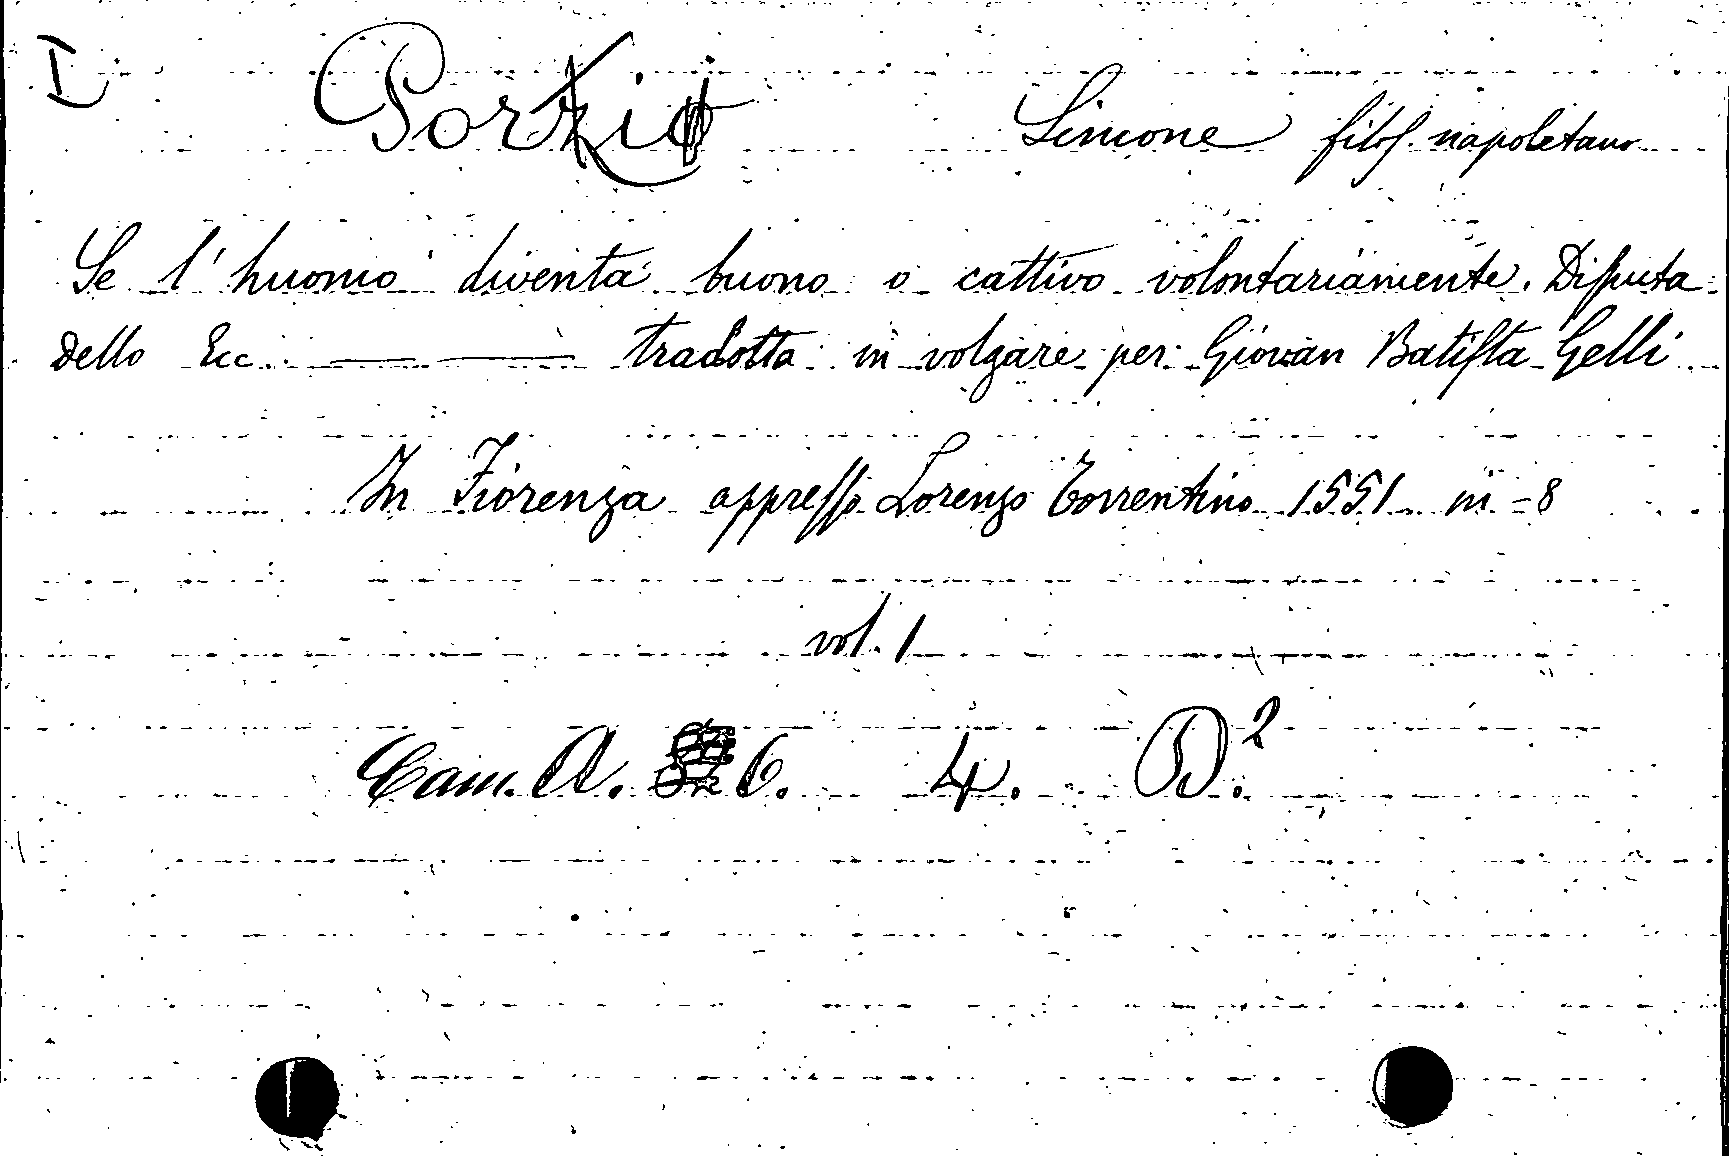 I Porzio Simone filos. napoletano
Se l'huomo diventa buono o cattivo volontariamente. Disputa
dello Ecc. ——— ——— tradotta in volgare per Giovan Batista Gelli
In Fiorenza appresso Lorenzo Torrentino 1551 in-8
vol. 1
Cam. A. 6. 4. D.²